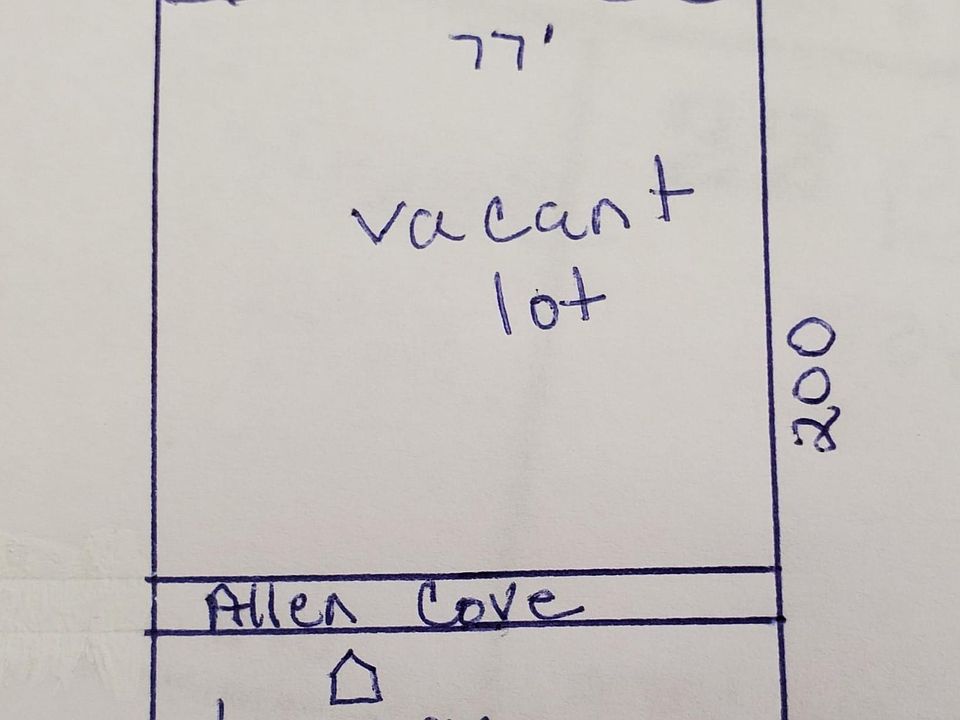 77'
vacant
lot
200
Allen Cove